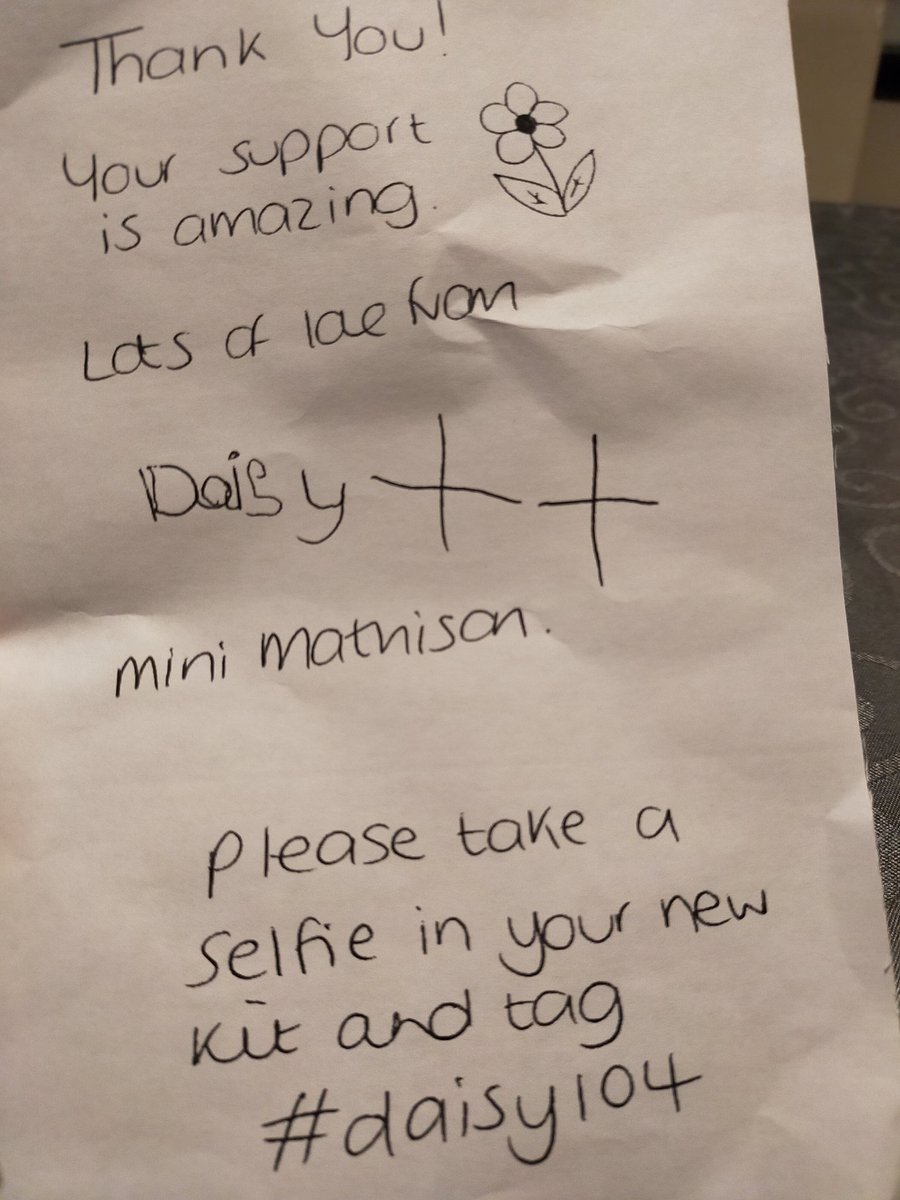 Thank You!
Your support
is amazing.
Lots of love from
Daisy ++
mini mathison.
Please take a
selfie in your new
kit and tag
#daisy104